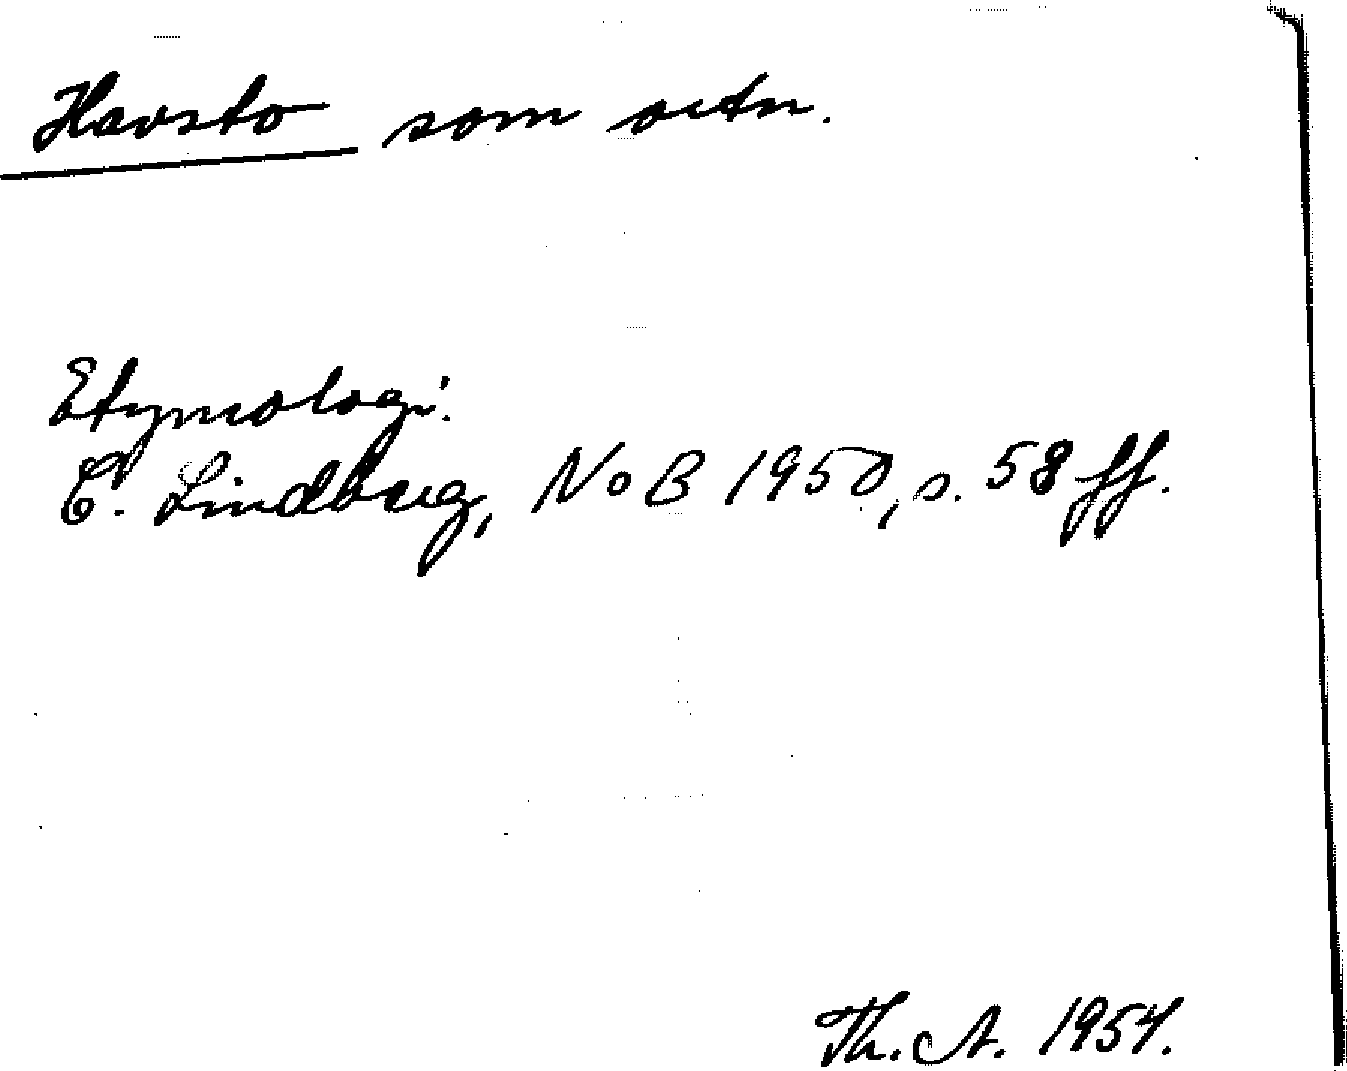 Havsto som ortn.
Etymologi:
C. Lindberg, NoB 1950, s. 58 ff.
Th. A. 1954.